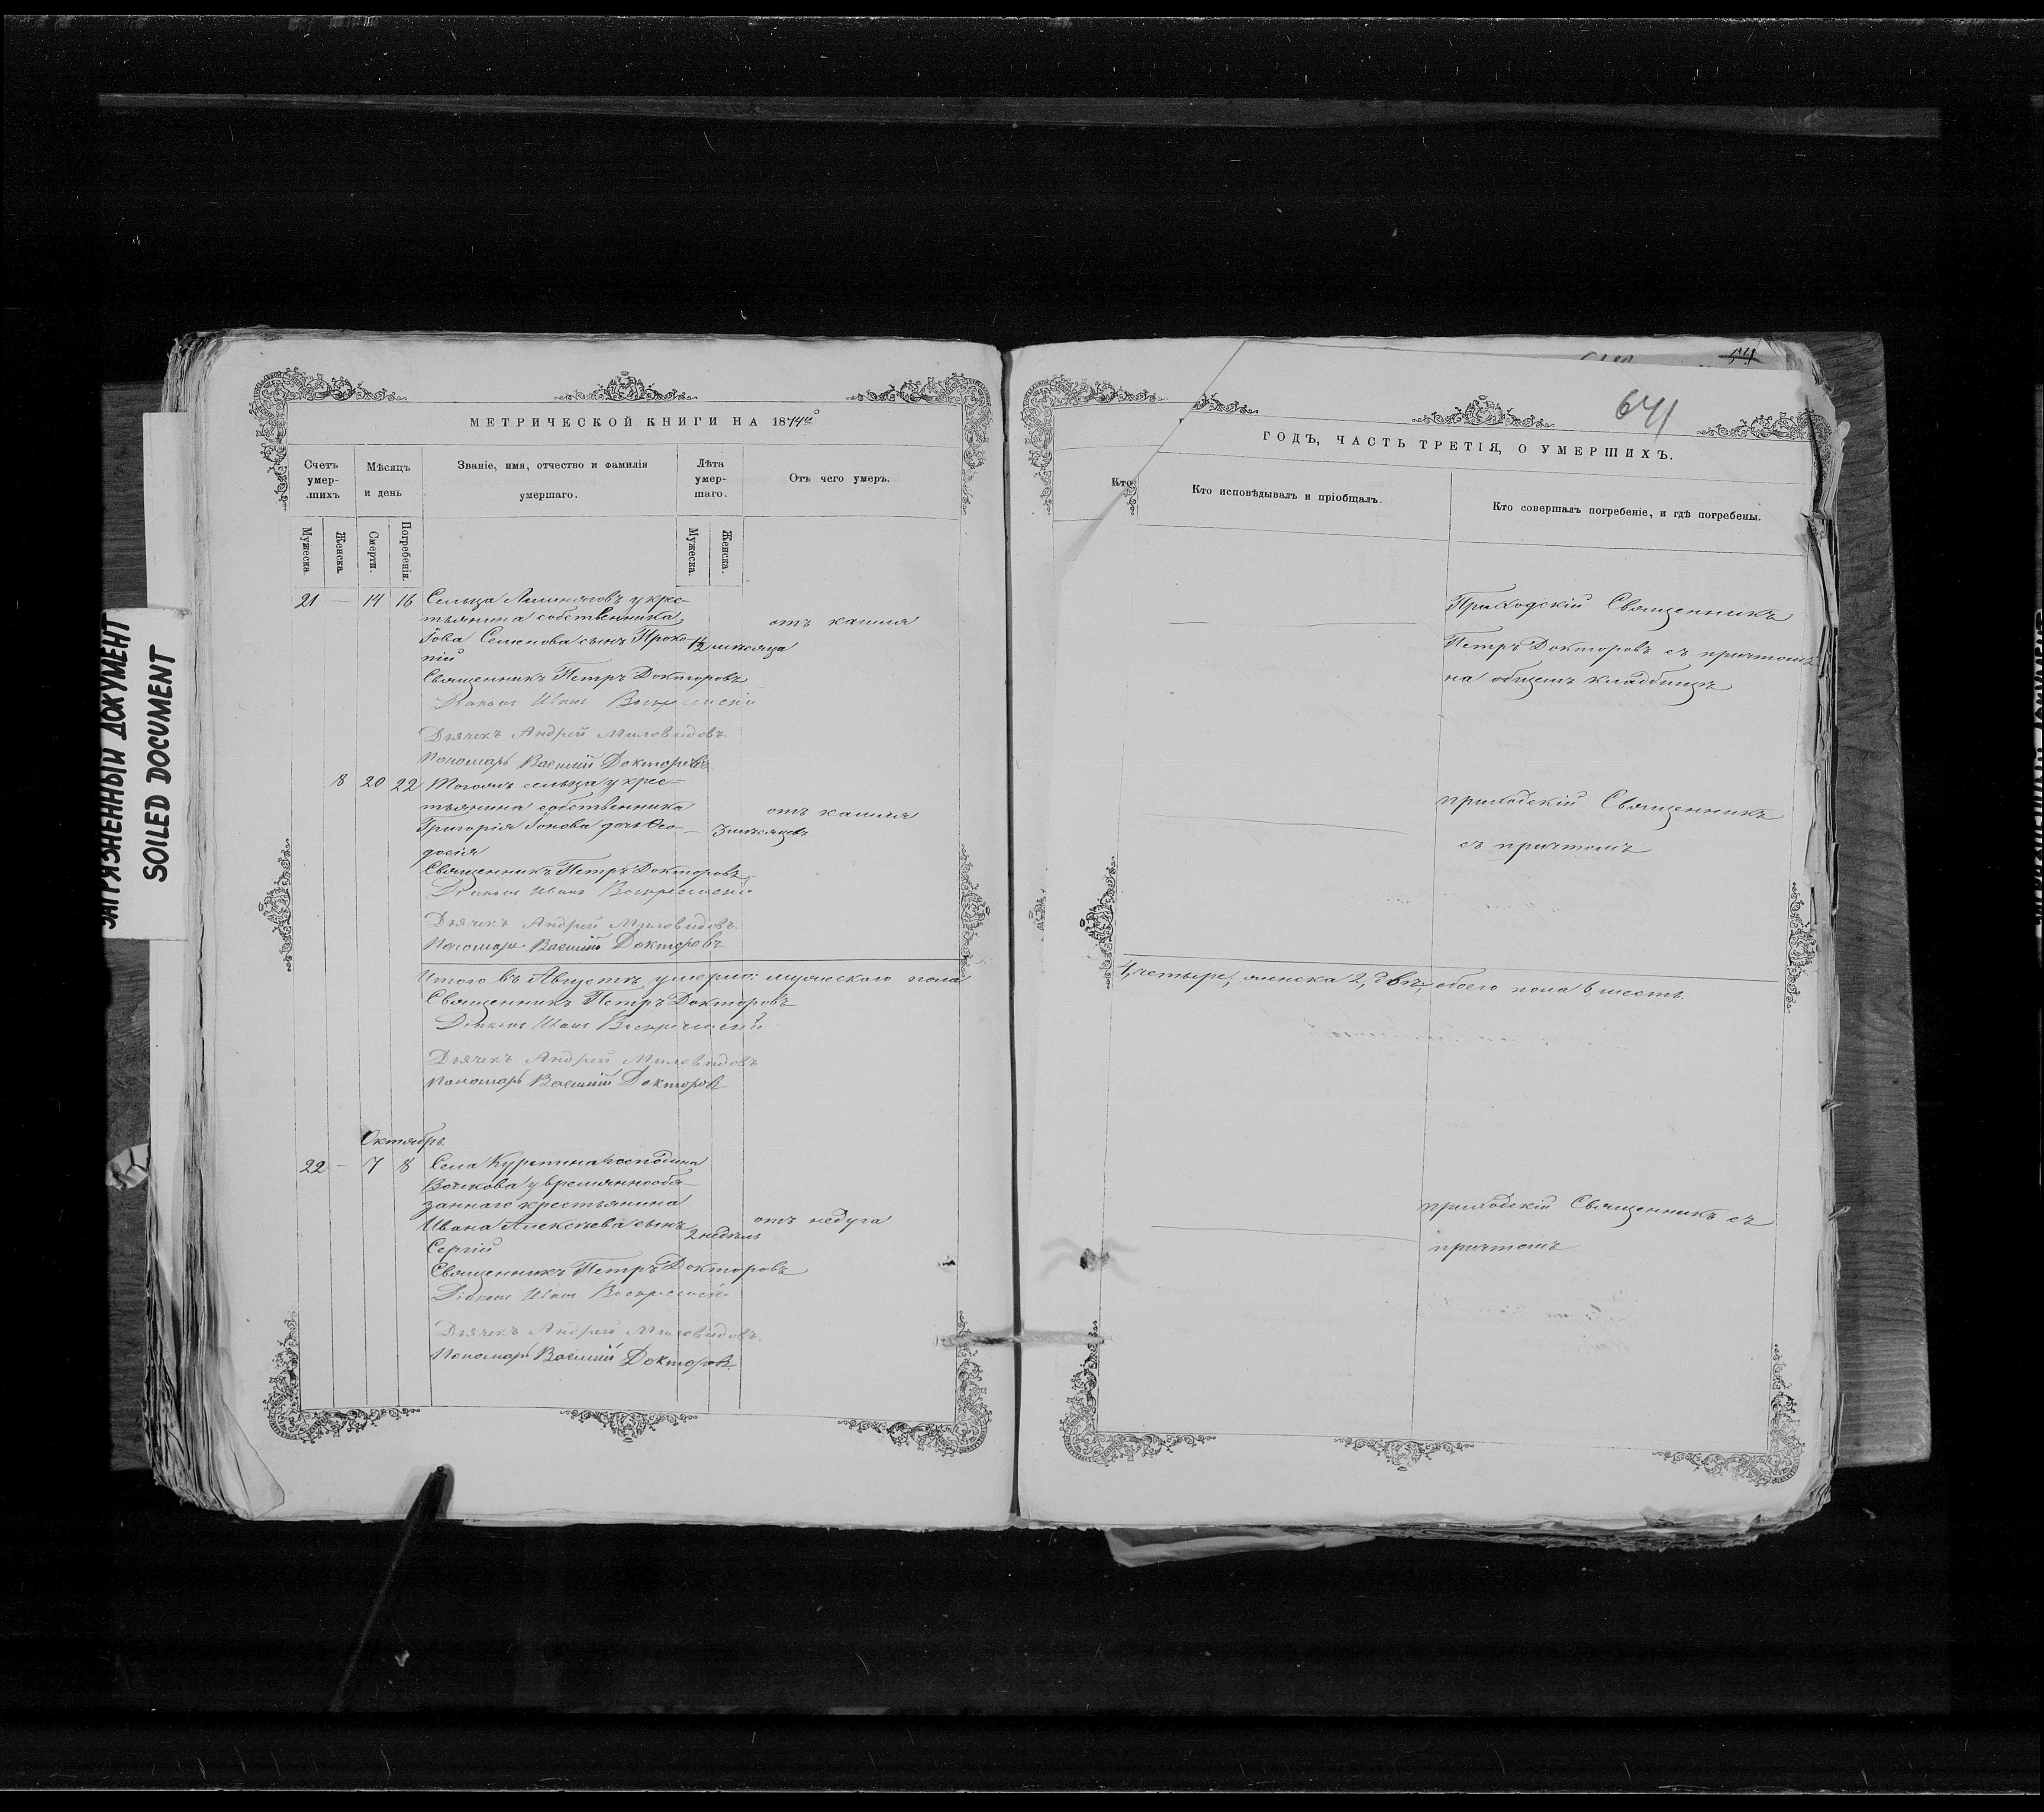 ЗАГРЯЗНЕННЫЙ ДОКУМЕНТ
SOILED DOCUMENT
МЕТРИЧЕСКОЙ КНИГИ НА 1874й
Счетъ умер-шихъ
Мѣсяцъ и день
Званіе, имя, отчество и фамилія умершаго.
Лѣта умер-шаго.
Отъ чего умеръ.
Мужеска.
Женска.
Смерти.
Погребенія.
Мужеска.
Женска.
21 — 14 16 Сельца у крес-
тьянина собственника
Іова Семенова сынъ Проко-
пій
1/2 мѣсяца
отъ кашля
Священникъ Петръ Докторовъ
Діаконъ Иванъ Воскресенскій
Дьячекъ Андрей Миловидовъ
Пономарь Василій Докторовъ
8 20 22 Тогожъ сельца у крес-
тьянина собственника
Григорія Іонова дочь Ѳео-
досія
— 3 мѣсяцевъ
отъ кашля
Священникъ Петръ Докторовъ
Діаконъ Иванъ Воскресенскій
Дьячекъ Андрей Миловидовъ.
Пономарь Василій Докторовъ
Итого въ Августѣ умерло: мужескаго пола
Священникъ Петръ Докторовъ
Діаконъ Иванъ Воскресенскій
Дьячекъ Андрей Миловидовъ
Пономарь Василій Докторовъ
Октябрь.
22 — 7 8 Села господина
у временнообя-
заннаго крестьянина
Ивана Алексѣева сынъ
Сергій
2 недѣль
отъ недуга
Священникъ Петръ Докторовъ
Діаконъ Иванъ Воскресенскій
Дьячекъ Андрей Миловидовъ.
Пономарь Василій Докторовъ.
641
ГОДЪ, ЧАСТЬ ТРЕТІЯ, О УМЕРШИХЪ.
Кто
Кто исповѣдывалъ и пріобщалъ.
Кто совершалъ погребеніе, и гдѣ погребены.
Приходскій Священникъ
Петръ Докторовъ съ причтомъ
на общемъ кладбищѣ
приходскій Священникъ
съ причтомъ
4, четыре, женска 2, двѣ, обоего пола 6, шесть.
приходскій Священникъ съ
причтомъ